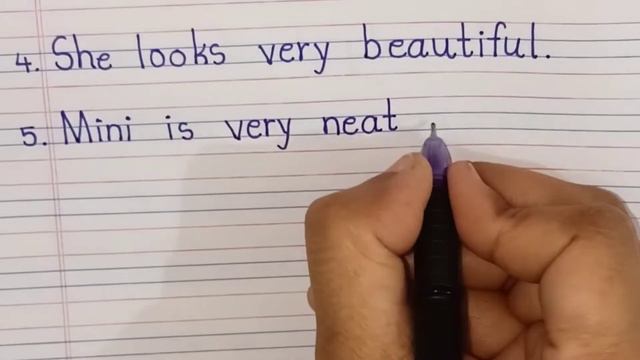 4. She looks very beautiful.
5. Mini is very neat